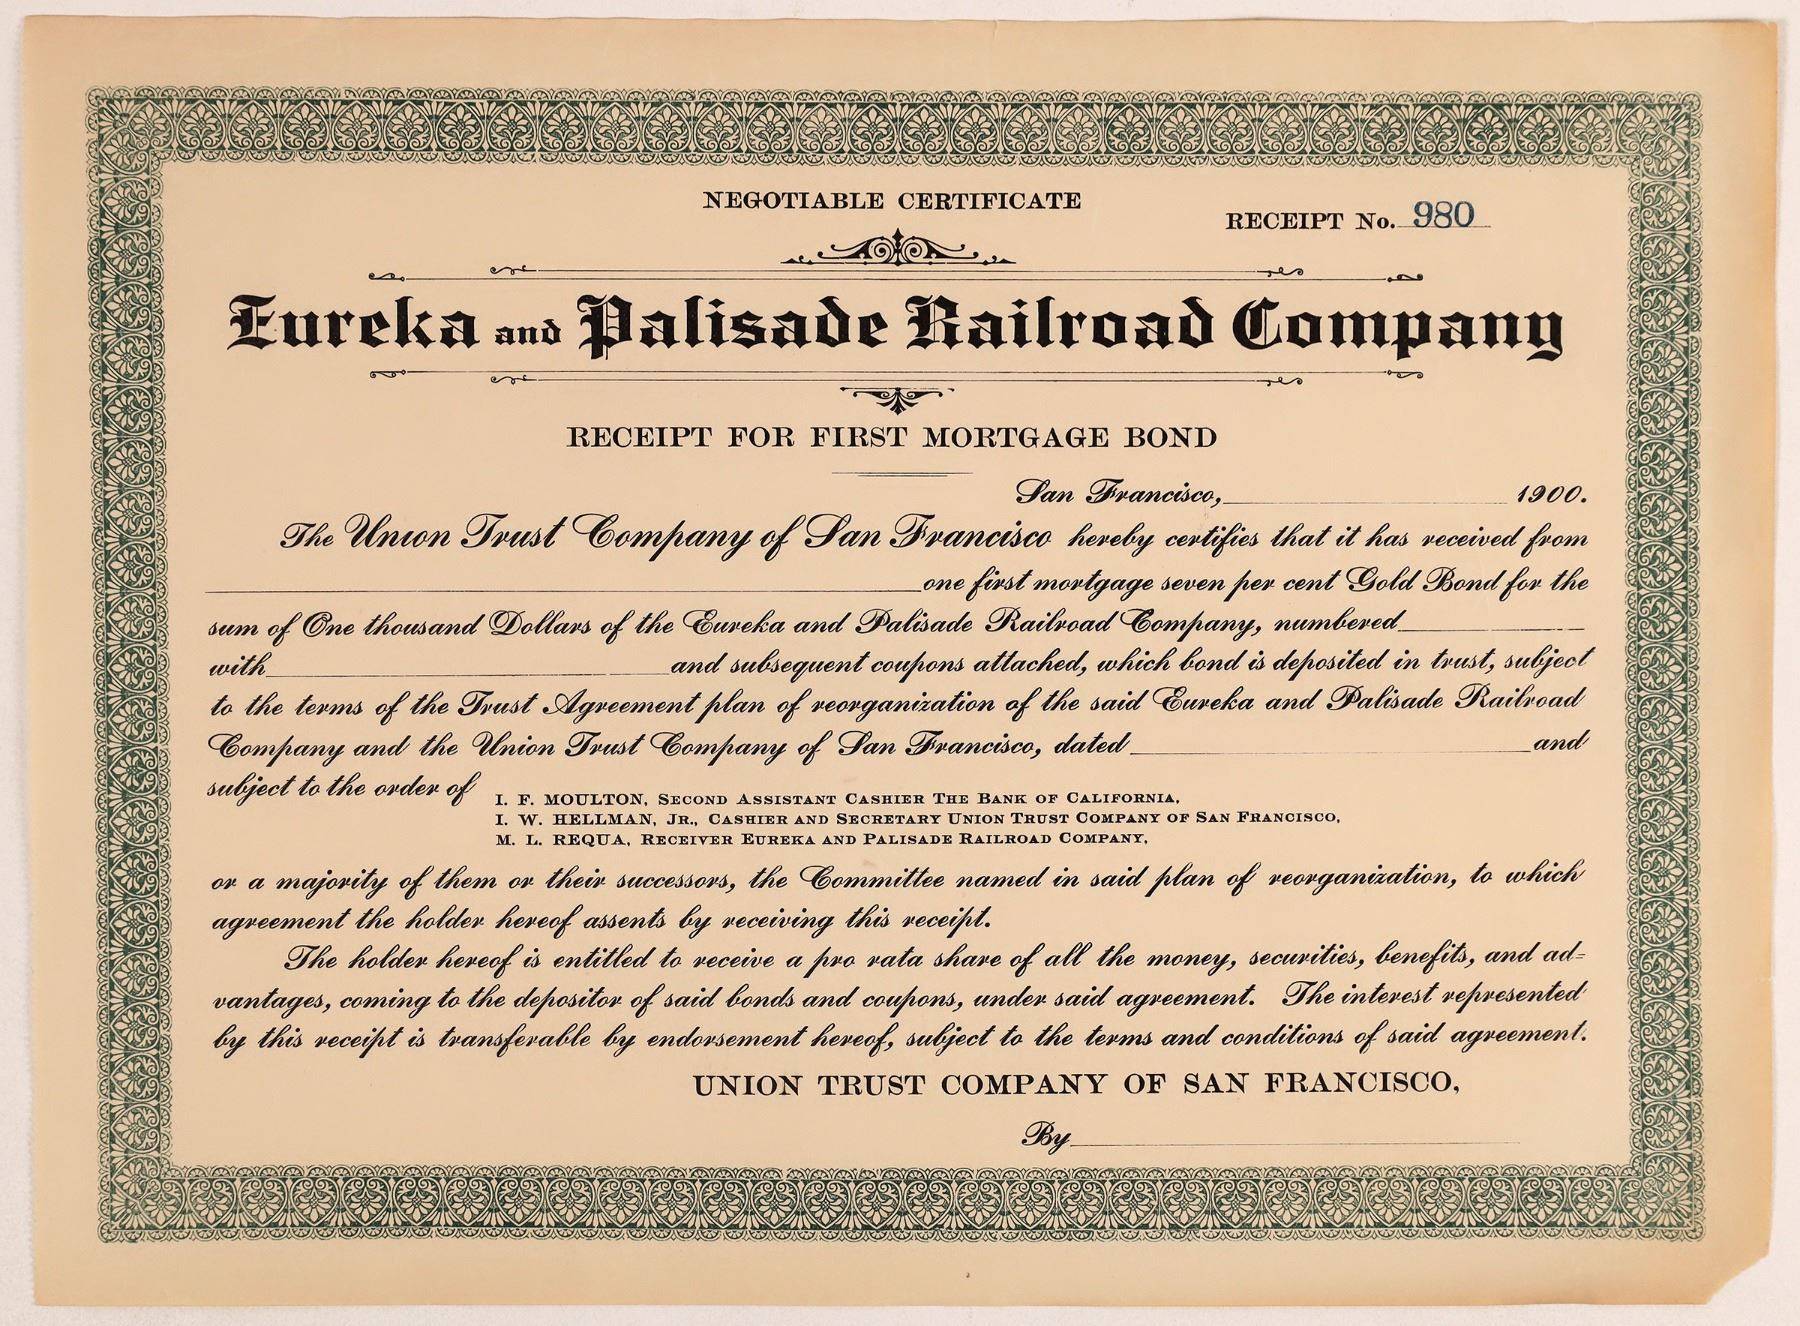 NEGOTIABLE CERTIFICATE
RECEIPT No. 980
Eureka and Palisade Railroad Company
RECEIPT FOR FIRST MORTGAGE BOND
San Francisco, 1900.
The Union Trust Company of San Francisco hereby certifies that it has received from
one first mortgage seven per cent Gold Bond for the
sum of One thousand Dollars of the Eureka and Palisade Railroad Company, numbered
with and subsequent coupons attached, which bond is deposited in trust, subject
to the terms of the Trust Agreement plan of reorganization of the said Eureka and Palisade Railroad
Company and the Union Trust Company of San Francisco, dated and
subject to the order of
I. F. MOULTON, SECOND ASSISTANT CASHIER THE BANK OF CALIFORNIA,
I. W. HELLMAN, JR., CASHIER AND SECRETARY UNION TRUST COMPANY OF SAN FRANCISCO,
M. L. REQUA, RECEIVER EUREKA AND PALISADE RAILROAD COMPANY,
or a majority of them or their successors, the Committee named in said plan of reorganization, to which
agreement the holder hereof assents by receiving this receipt.
The holder hereof is entitled to receive a pro rata share of all the money, securities, benefits, and ad=
vantages, coming to the depositor of said bonds and coupons, under said agreement. The interest represented
by this receipt is transferable by endorsement hereof, subject to the terms and conditions of said agreement.
UNION TRUST COMPANY OF SAN FRANCISCO,
By